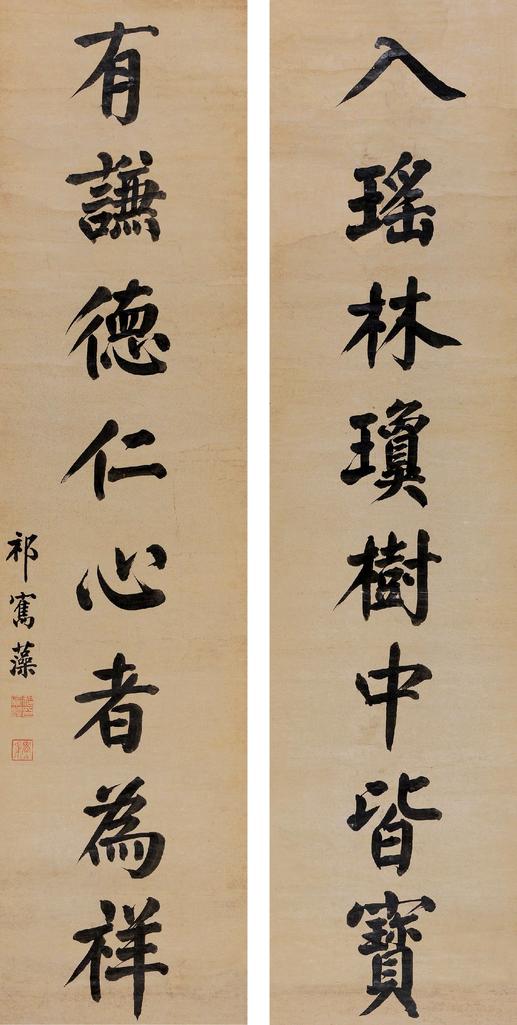 入瑤林瓊樹中皆寶
有謙德仁心者為祥
祁寯藻